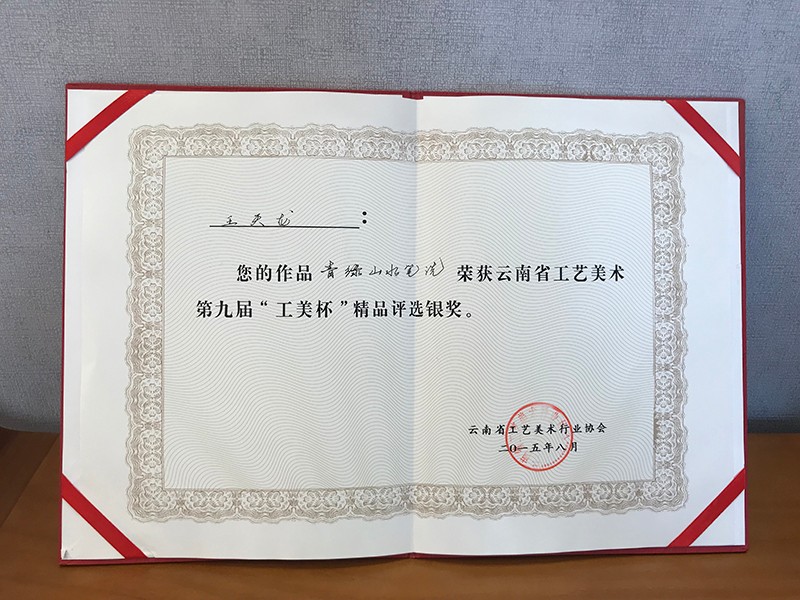 王天龙：
您的作品 青绿山水笔洗 荣获云南省工艺美术
第九届“工美杯”精品评选银奖。
云南省工艺美术行业协会
二〇一五年八月